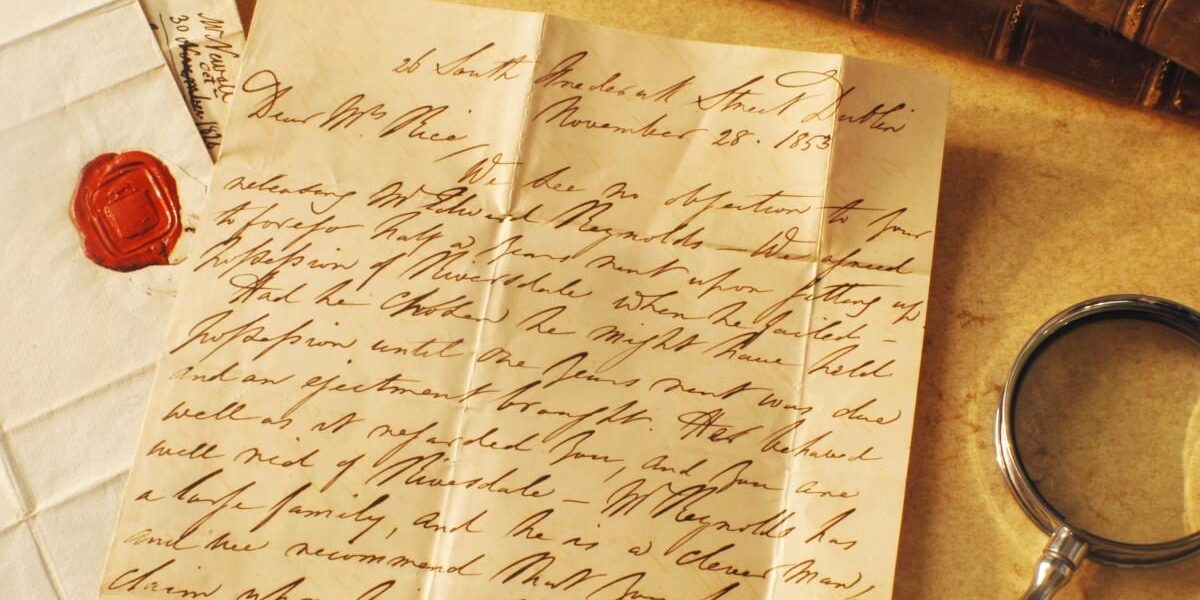 26 South Frederick Street Dublin
November 28. 1853
Dear Mrs Rice
We see no objection to your
releasing Mr Edward Reynolds — We agreed
to forego half a years rent upon getting up
possession of Riversdale when he failed —
Had he chosen he might have held
possession until one years rent was due
and an ejectment brought. He behaved
well as it regarded you, and you are
well rid of Riversdale — Mr Reynolds has
a large family, and he is a clever man,
and we recommend that you
claim
Mr Newall
Oct
30 November